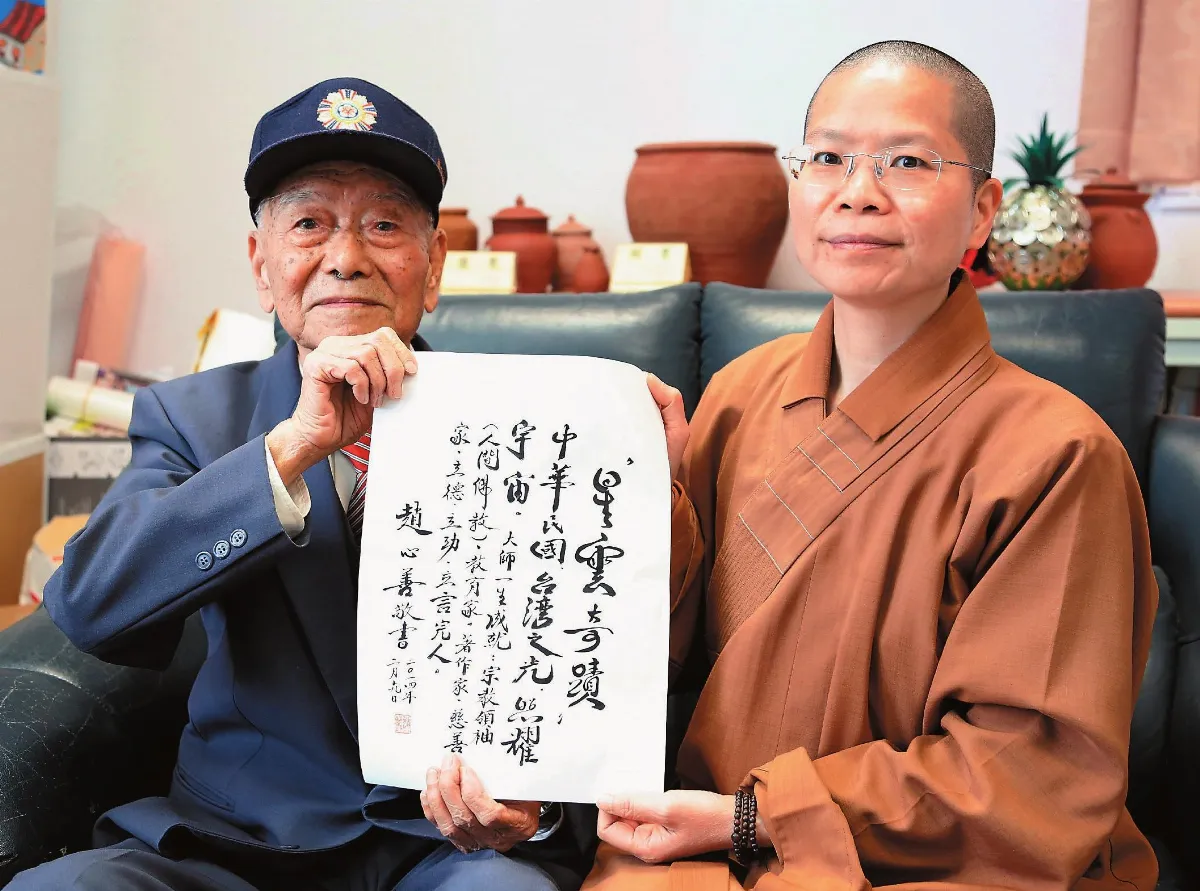 〝星雲奇蹟〞
中華民國台灣之光．照耀
宇宙。大師一生成就：宗教領袖
（人間佛教）、教育家、著作家、慈善
家．立德．立功．立言完人。
趙心善敬書
二〇一四年
二月九日